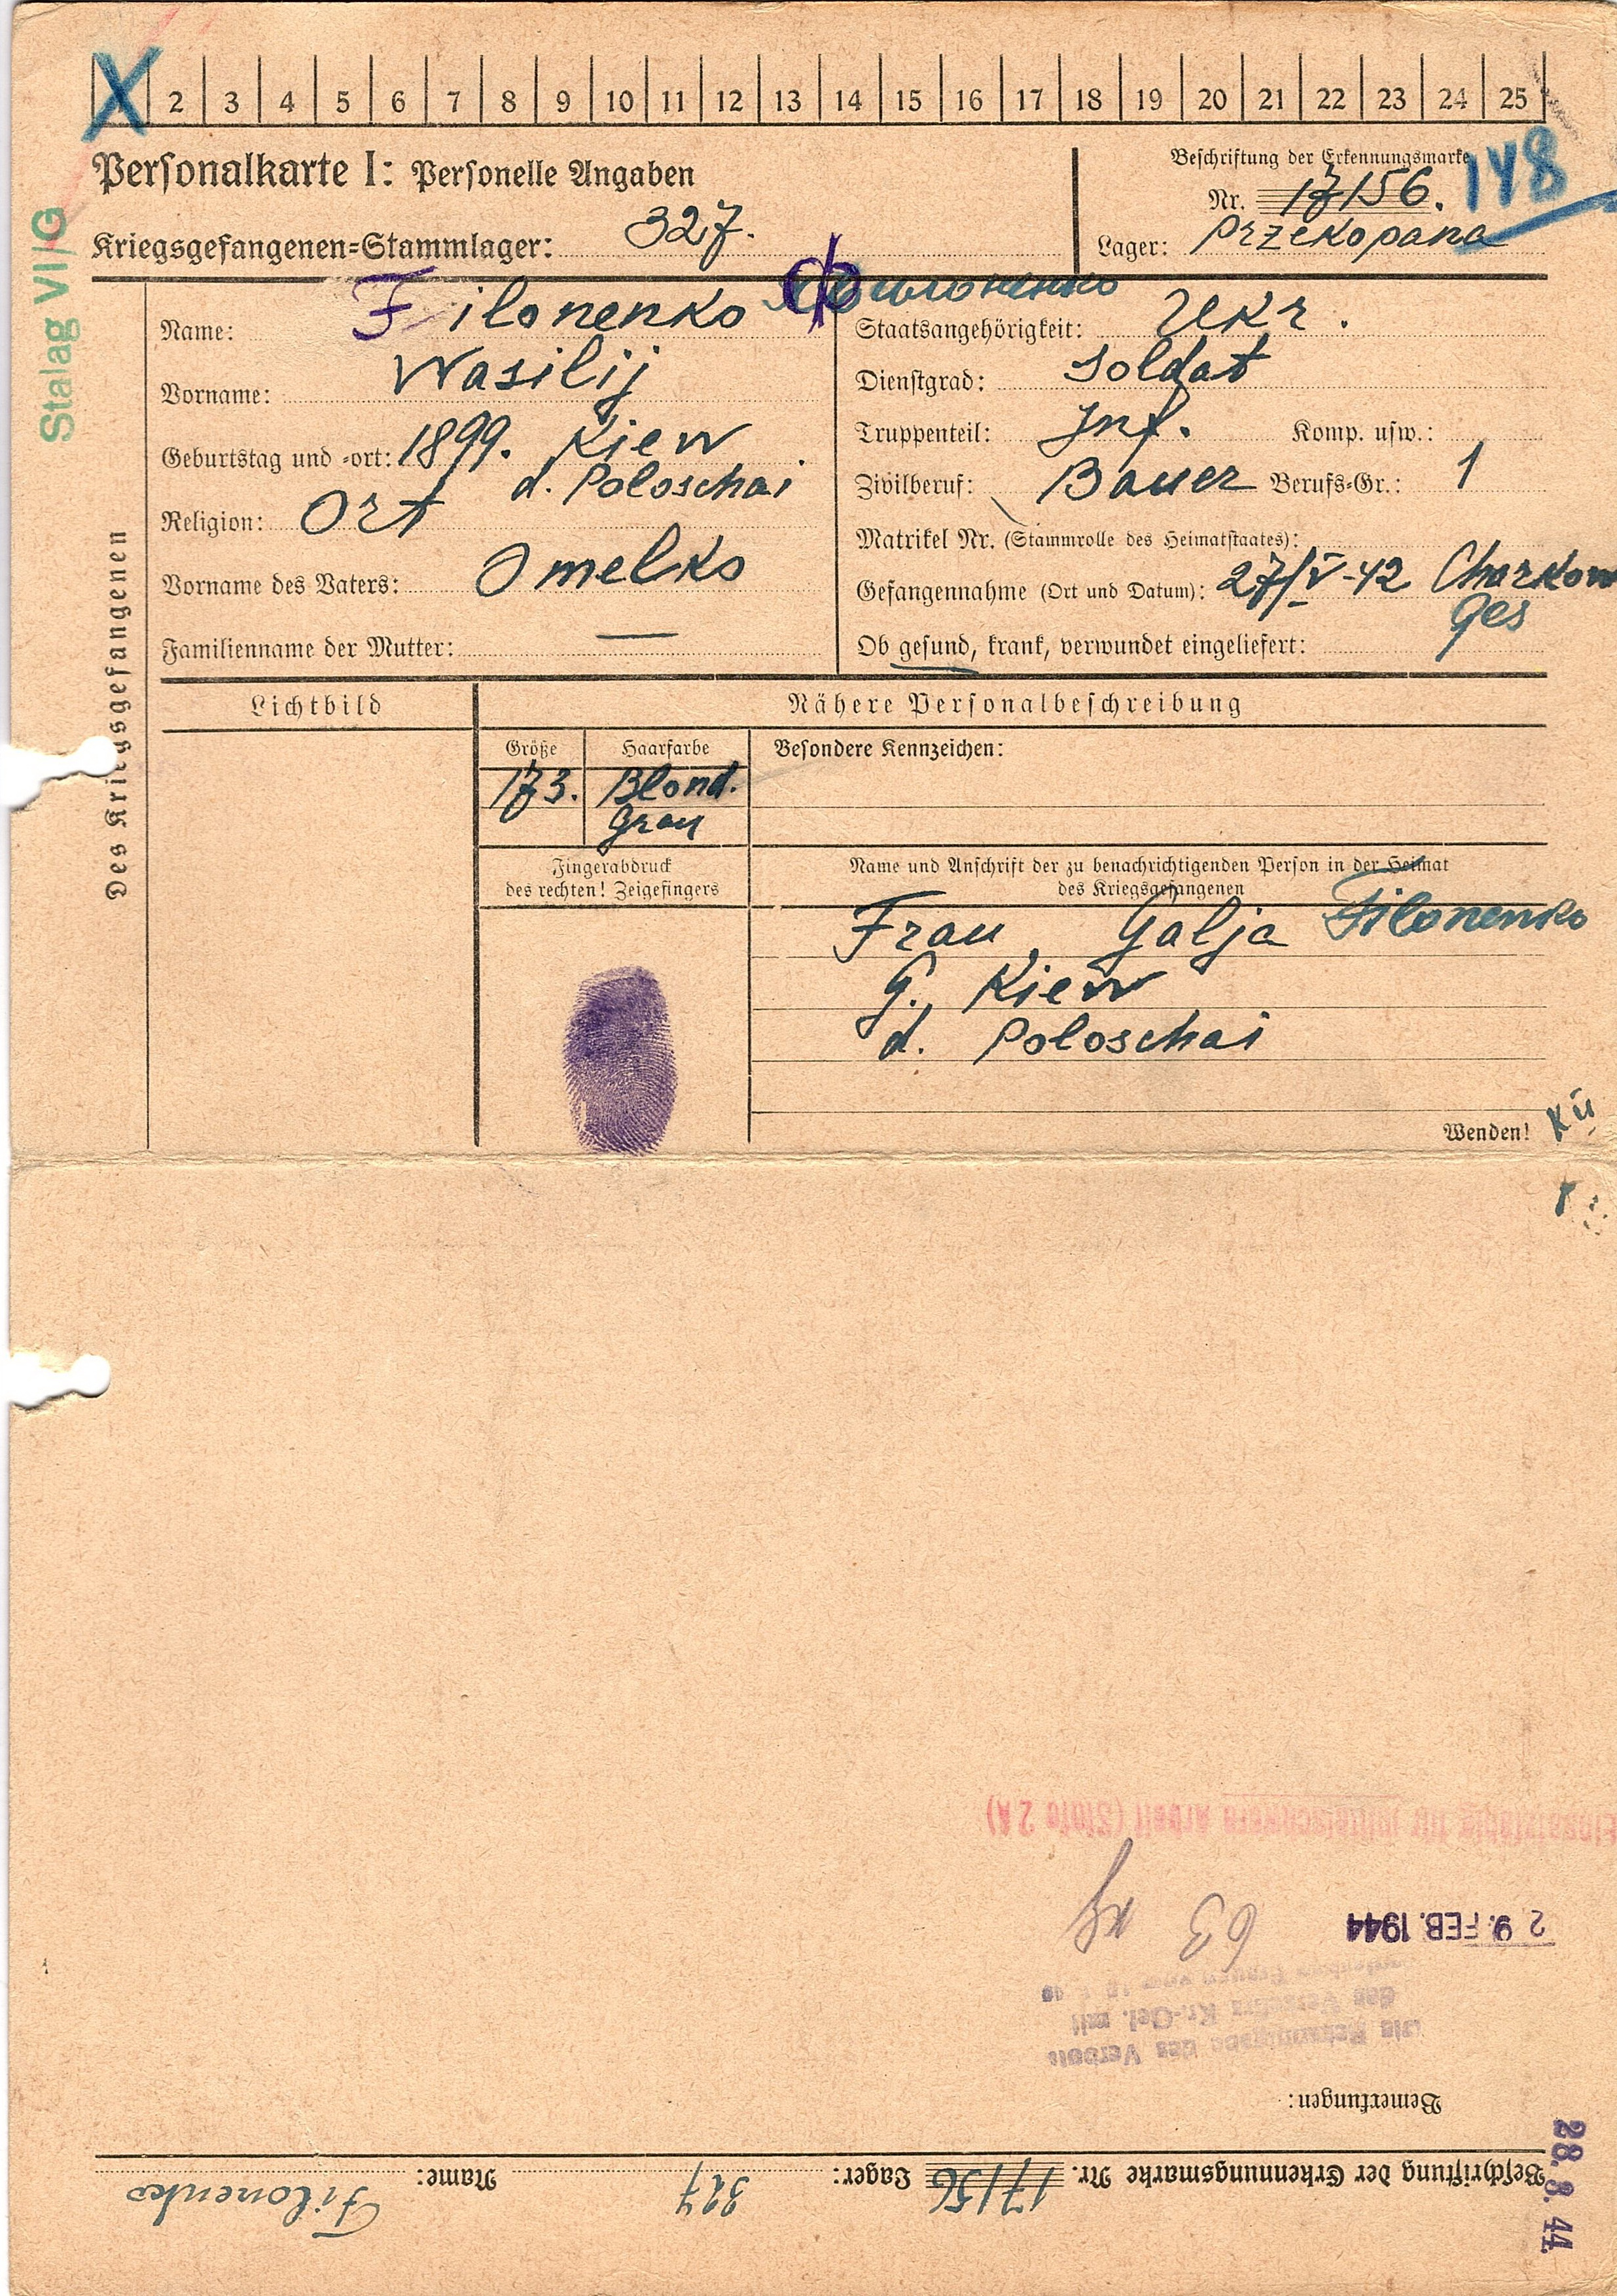 X 2 3 4 5 6 7 8 9 10 11 12 13 14 15 16 17 18 19 20 21 22 23 24 25
Personalkarte I: Personelle Angaben
Beschriftung der Erkennungsmarke
Nr. 17156. 148
Kriegsgefangenen-Stammlager: 327.
Lager: Przekopana
Stalag VI/G
Des Kriegsgefangenen
Name: Filonenko Филоненко
Vorname: Wasilij
Geburtstag und -ort: 1899. Kiew
d. Poloschai
Religion: Ort
Vorname des Vaters: Omelko
Familienname der Mutter: —
Staatsangehörigkeit: Ukr.
Dienstgrad: Soldat
Truppenteil: Inf. Komp. usw.:
Zivilberuf: Bauer Berufs-Gr.: 1
Matrikel Nr. (Stammrolle des Heimatstaates):
Gefangennahme (Ort und Datum): 27/V-42 Charkow
Ob gesund, krank, verwundet eingeliefert: Ges
Lichtbild
Nähere Personalbeschreibung
Größe Haarfarbe Besondere Kennzeichen:
173. Blond.
Grau
Fingerabdruck
des rechten! Zeigefingers
Name und Anschrift der zu benachrichtigenden Person in der Heimat
des Kriegsgefangenen
Frau Galja Filonenko
G. Kiew
d. Poloschai
Wenden!
Kü
Beschriftung der Erkennungsmarke Nr. 17156 Lager: 327 Name: Filonenko
Bemerkungen:
Die Bekanntgabe des Verbots
des Verkehrs Kr.-Gef. mit
29. FEB. 1944 63 kg
Einsatzfähig für mittelschwere Arbeit (Stufe 2A)
28. 8. 44